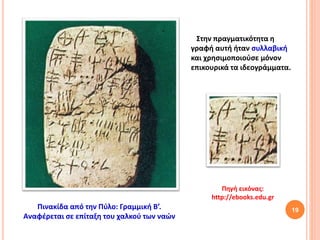 Στην πραγματικότητα η
γραφή αυτή ήταν συλλαβική
και χρησιμοποιούσε μόνον
επικουρικά τα ιδεογράμματα.
Πηγή εικόνας:
http://ebooks.edu.gr
Πινακίδα από την Πύλο: Γραμμική Β’.
Αναφέρεται σε επίταξη του χαλκού των ναών
19